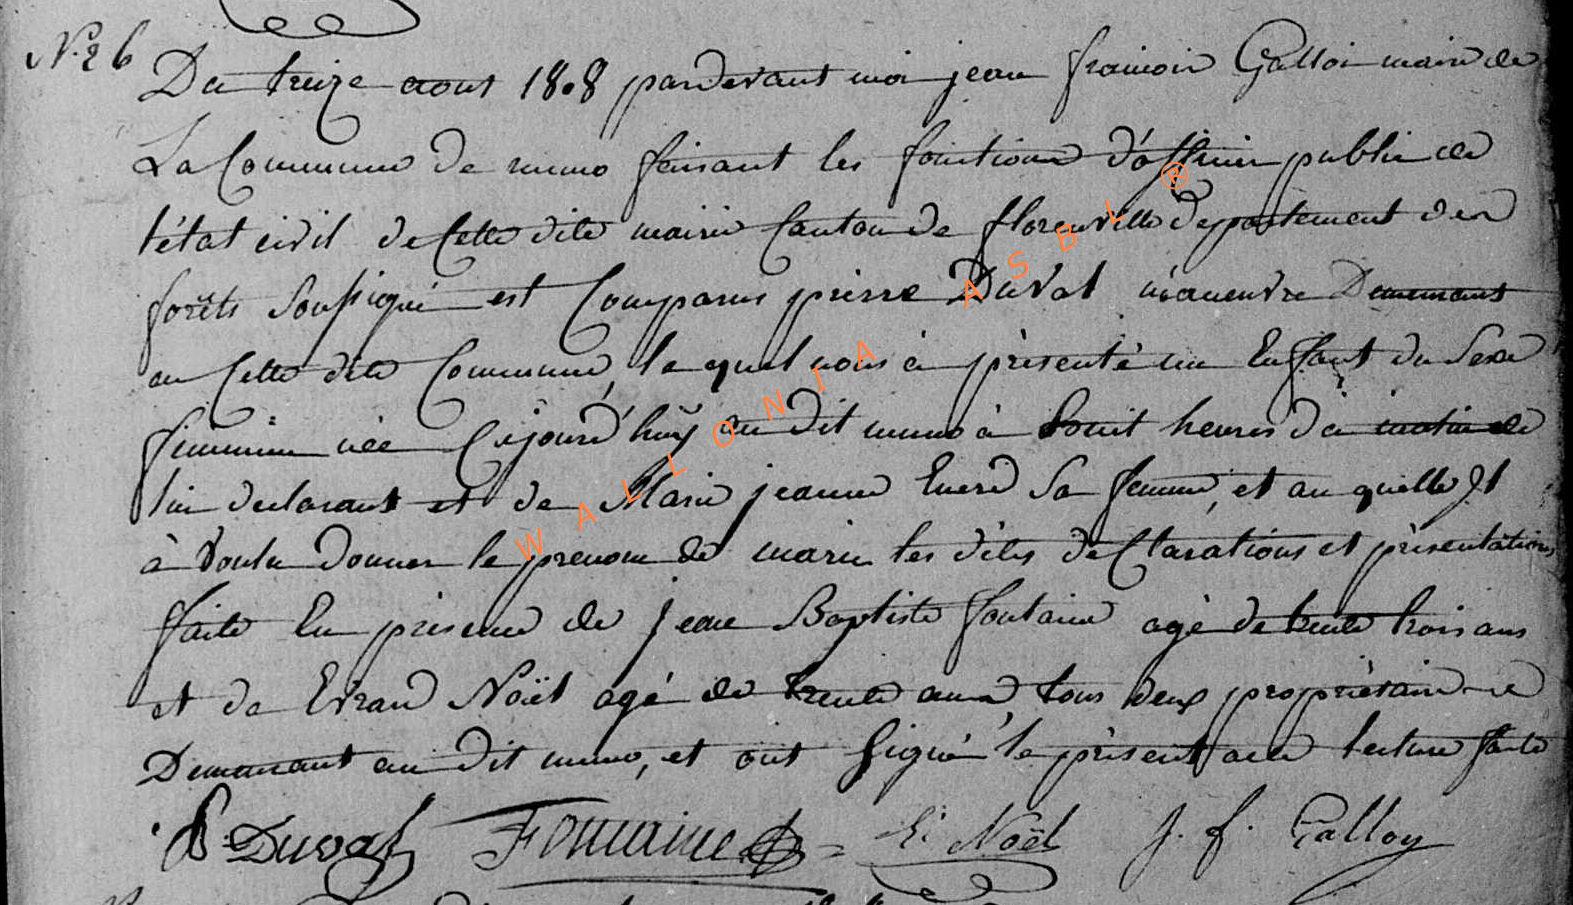 N.26
Du treize aout 1808 pardevant moi jean francois Galloi maire de
La Commune de muno faisant les fonctions d'officier public de
l'état civil de Cette dite mairie Canton de florenville departement des
forêts soussigné est Comparus pierre Duval manoeuvre Demeurant
en Cette dite Commune, le quel nous à présenté un Enfant du Sexe
feminin née Cejourd'huÿ au dit muno à huit heures da matin de
lui declarant et de Marie jeanne sa femme, et au quelle Jl
à voulu donner le prenom de marie les dites declarations et présentations
faite En présence de jean Baptiste fontaine agé de trente trois ans
et de Evrard Noël agé de trente ans, tous deux propriétaire
Demeurant au dit muno, et ont signé le présent acte lecture faite
P. Duval Fontaine E. Noël J. f. Galloy
WALLONIA ASBL ®